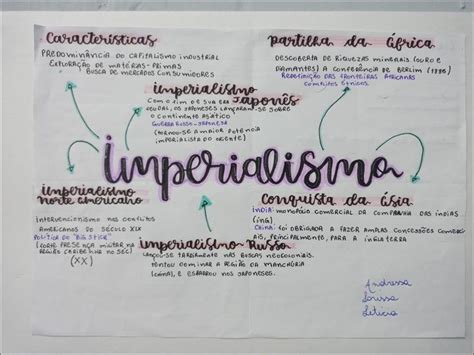 Características
PREDOMINÂNCIA DO CAPITALISMO INDUSTRIAL
EXPLORAÇÃO DE MATÉRIAS-PRIMAS
BUSCA DE MERCADOS CONSUMIDORES
partilha da África
DESCOBERTA DE RIQUEZAS MINERAIS (OURO E
DIAMANTES) A CONFERÊNCIA DE BERLIM
REDEFINIÇÃO DAS FRONTEIRAS AFRICANAS
CONFLITOS ÉTNICOS.
imperialismo
Japonês
COM O FIM DE SUA ERA
FEUDAL, OS JAPONESES LANÇARAM-SE SOBRE
O CONTINENTE ASIÁTICO
GUERRA RUSSO-JAPONESA
(TORNOU-SE A MAIOR POTÊNCIA
IMPERIALISTA DO ORIENTE)
imperialismo
imperialismo
norte americano
INTERVENCIONISMO NOS CONFLITOS
AMERICANOS DO SÉCULO XIX
POLÍTICA DO "BIG STICK"
(FORTE PRESENÇA MILITAR NA
REGIÃO CARIBENHA NO SEC)
(XX)
conquista da Ásia
ÍNDIA: MONOPÓLIO COMERCIAL DA COMPANHIA DAS ÍNDIAS
(ING)
CHINA: FOI OBRIGADA A FAZER AMPLAS CONCESSÕES COMERCI
AIS, PRINCIPALMENTE, PARA A INGLATERRA
imperialismo Russo
LANÇOU-SE TARDIAMENTE NAS BUSCAS NEOCOLONIAIS.
TENTOU DOMINAR A REGIÃO DA MANCHÚRIA
(CHINA), E ESBARROU NOS JAPONESES.
Andressa
Larissa
Letícia